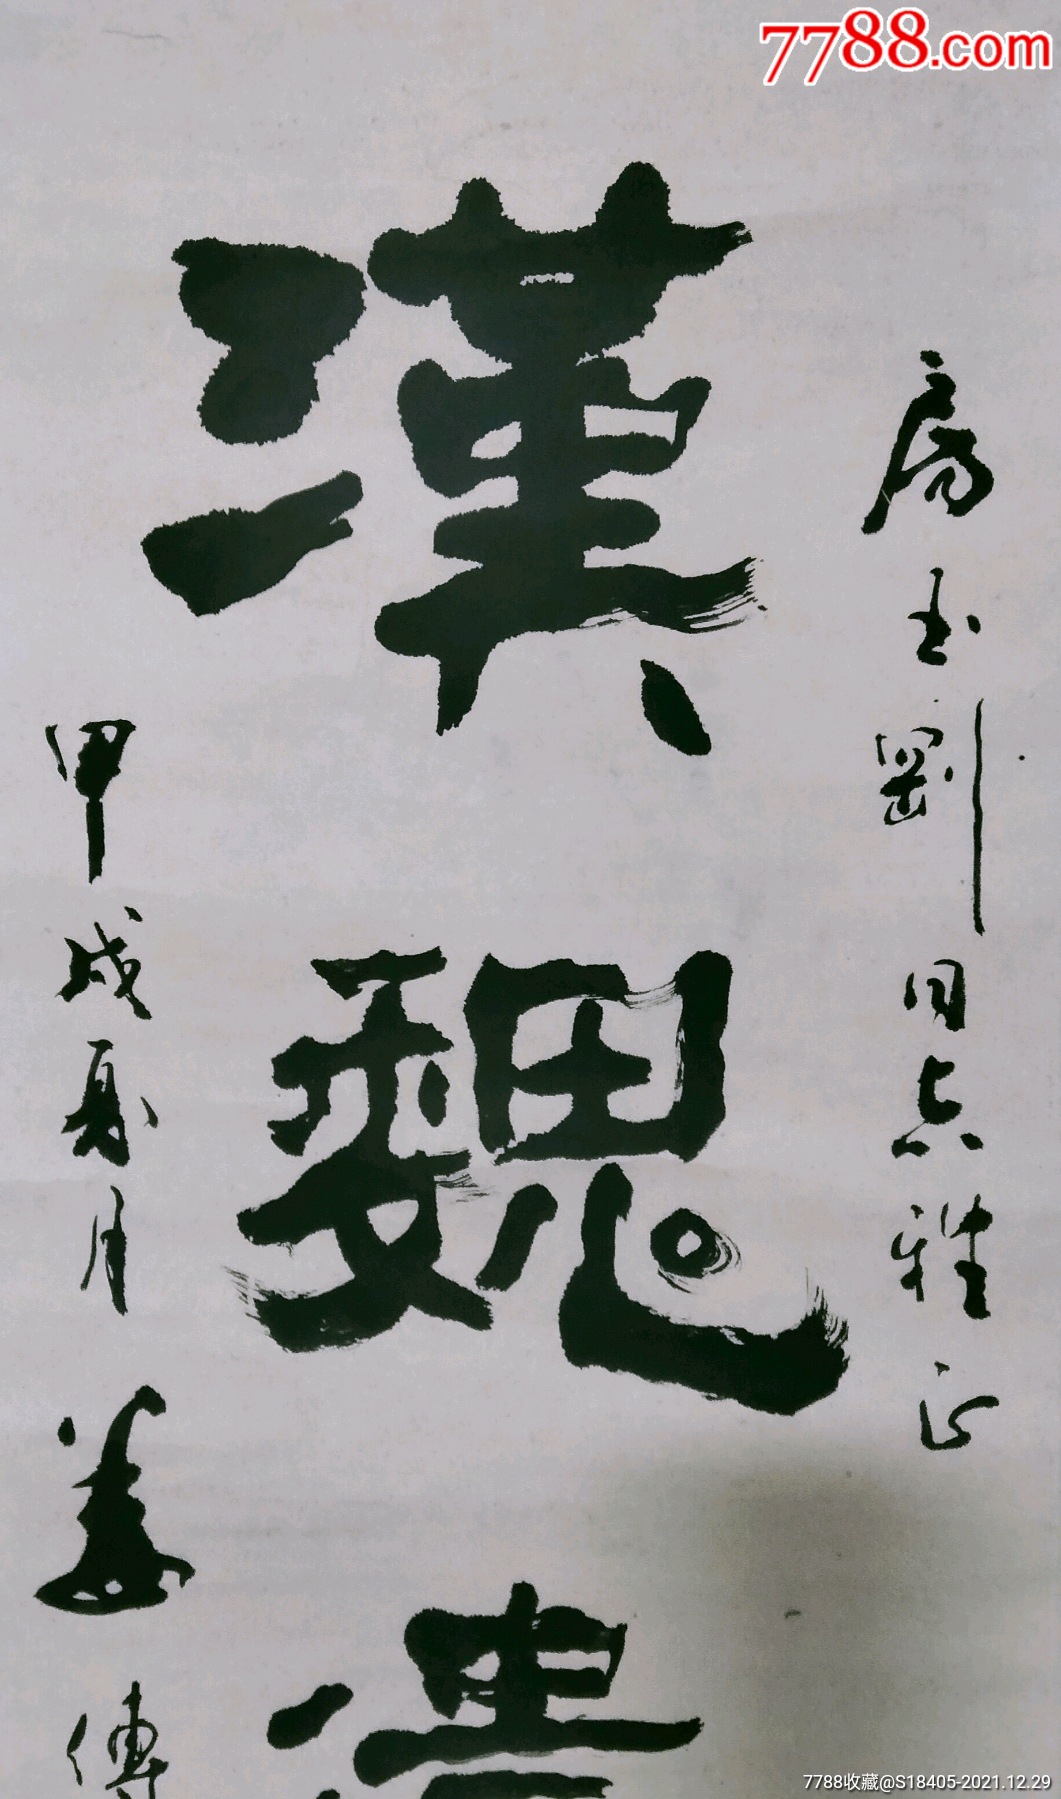 7788.com
房玉剛同志雅正
漢魏遺
甲戌夏月姜傳
7788收藏@S18405-2021.12.29